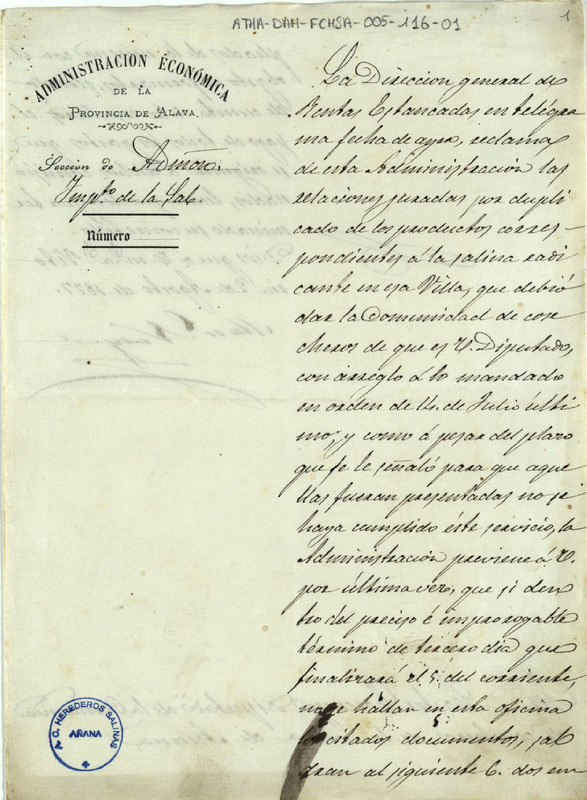 ATHA-DAH-FCHSA-005-116-01
1
ADMINISTRACION ECONÓMICA
DE LA
PROVINCIA DE ALAVA.
Seccion de Admon.
Impto. de la Sal.
Número
La Direccion general de
Rentas Estancadas en telégra
ma fecha de ayer, reclama
de esta Administración las
relaciones juradas por dupli
cado de los productos corres-
pondientes á la salina radi
cante en esa Villa, que debió
dar la Comunidad de cose
cheros de que es V. Diputado,
con arreglo á lo mandado
en orden de 14 de Julio últi
mo, y como á pesar del plazo
que se le señaló para que aque
llas fueran presentadas no se
haya cumplido éste servicio, la
Administración previene á V.
por última vez, que si den
tro del preciso é improrogable
término de tercero dia que
finalizará el 5 del corriente,
no se hallan en esta oficina
citados documentos, sal
dran al siguiente 6. dos em
A. C. HEREDEROS SALINAS
AÑANA